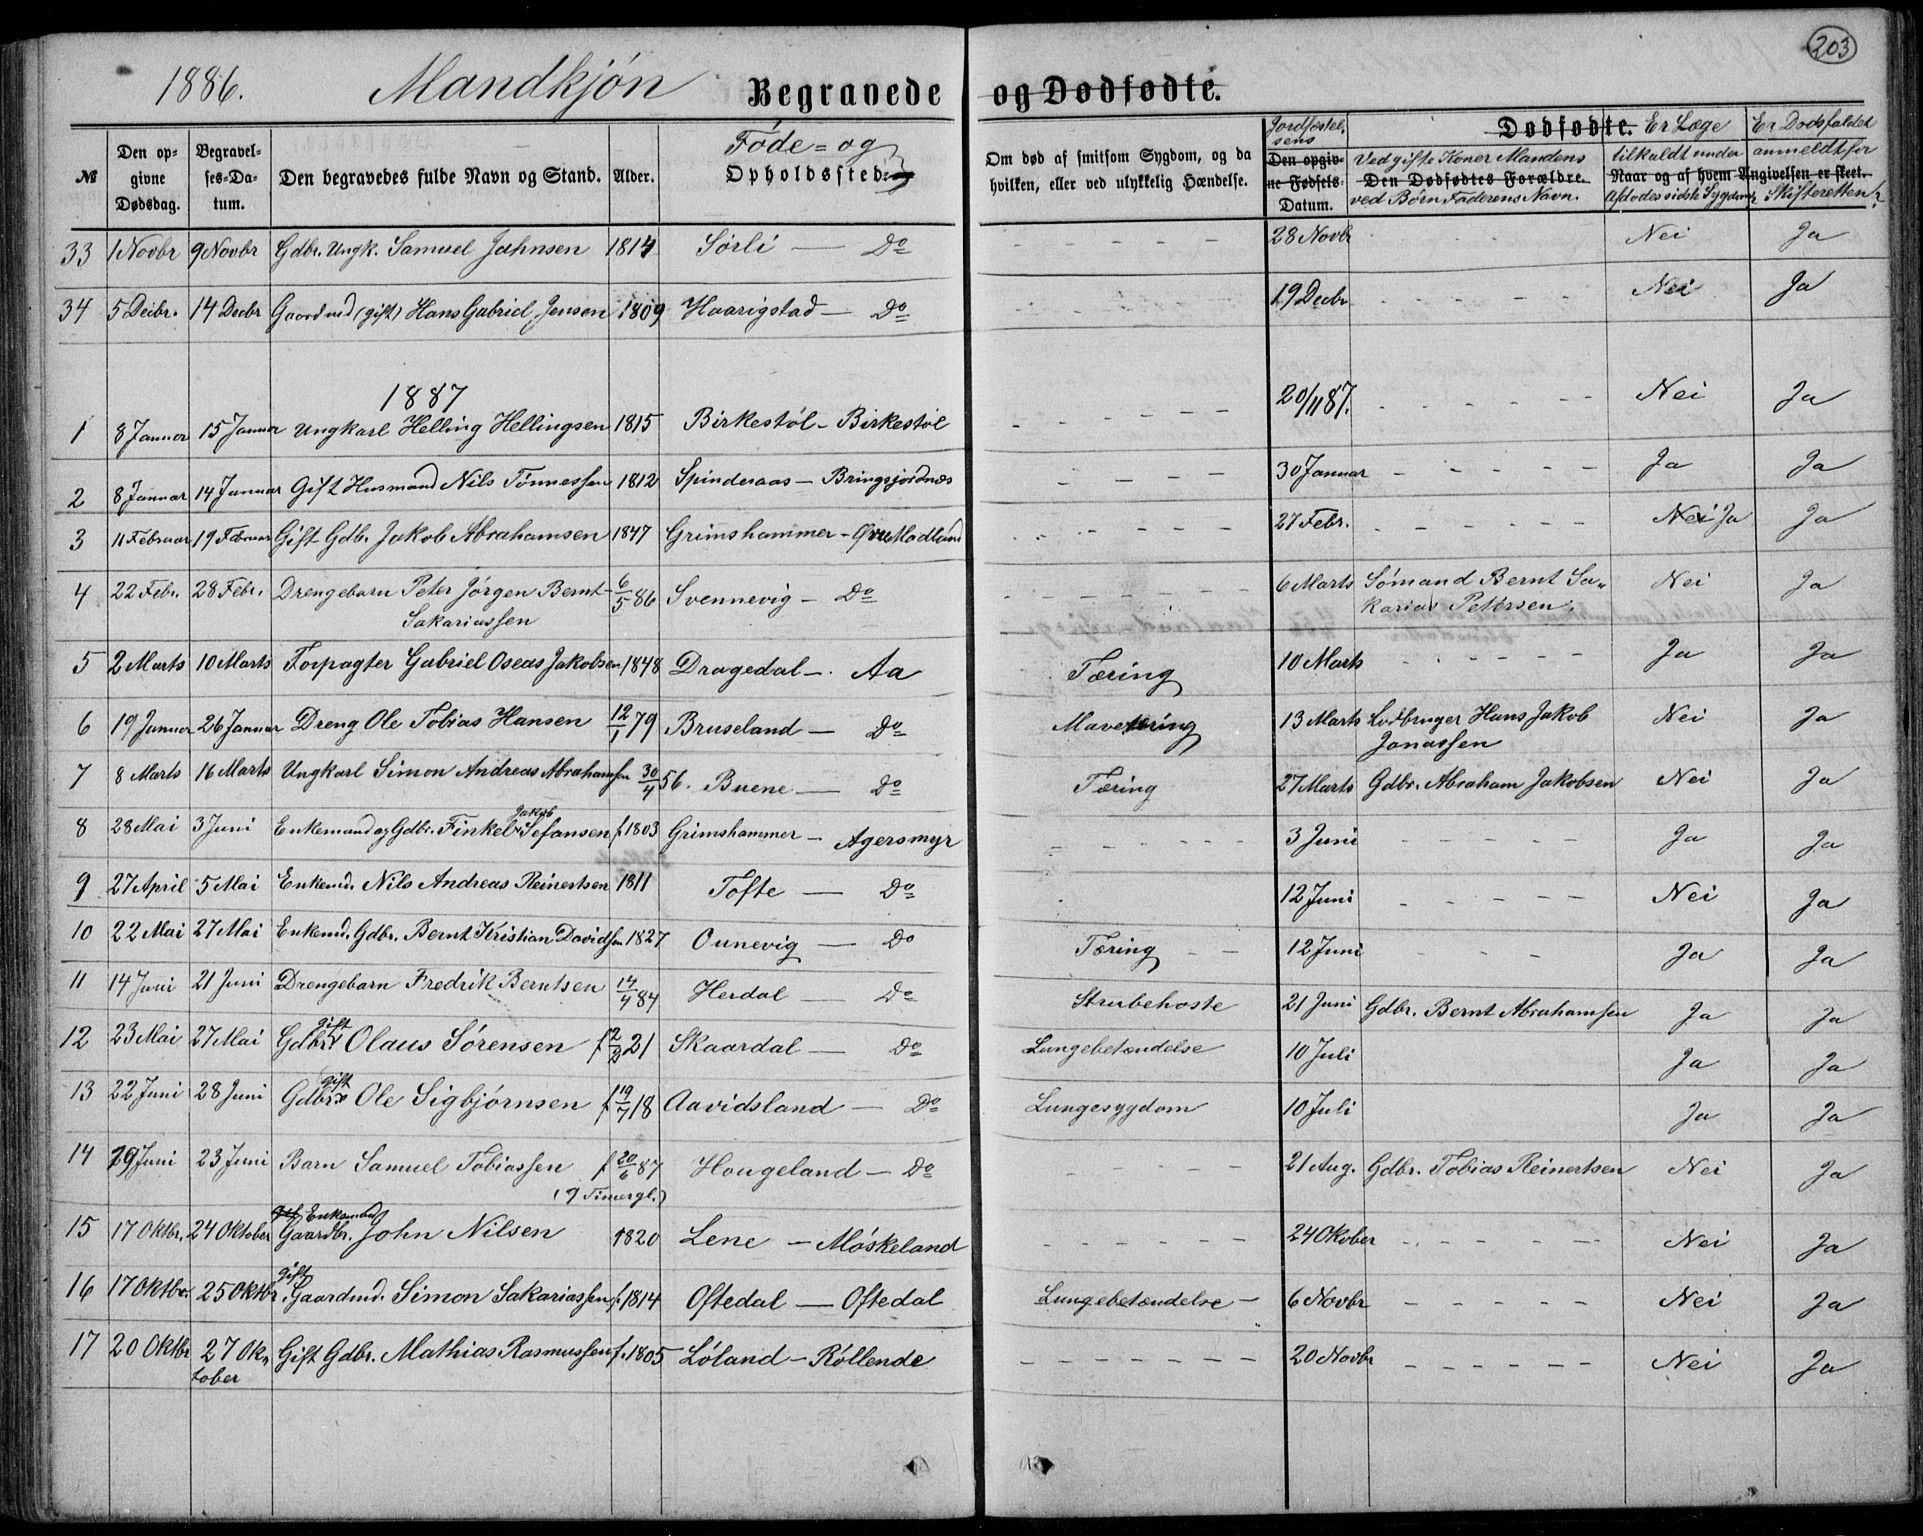 203
1886. Mandkjön Begravede og Dødfødte.
№ Den opgivne Dødsdag. Begravelses-Datum. Den begravedes fulde Navn og Stand. Alder. Føde- og Opholdssted. Om død af smitsom Sygdom, og da hvilken, eller ved ulykkelig Hændelse. Jordfæstelsens Den opgivne Fødsels- Datum. Dødfødte. Ved gifte Koner Mandens Den Dødfødtes Forældre. ved Børn Faderens Navn. Er Læge tilkaldt under Naar og af hvem Angivelsen er skeet. Afdødes sidste Sygdom Er Dødsfaldet anmeldt for Skifteretten?
33 1 Novbr 9 Novbr Gdbr. Ungk. Samuel Jahnsen 1814 Sørli — Do - - - - - - 28 Novbr Nei Ja
34 5 Decbr. 14 Decbr Gaardmd (gift) Hans Gabriel Jensen 1809 Haarigstad — Do 19 Decbr - - - - - Nei Ja
1887
1 8 Januar 15 Januar Ungkarl Helling Hellingsen 1815 Birkestøl - Birkestøl - - - - - - 20/11 87. - - - - - Nei Ja
2 8 Januar 14 Januar Gift Husmand Nils Tønnessen 1812 Spinderaas - Bringsjordnæs - - - 30 Januar - - - - - Ja Ja
3 11 Februar 19 Februar Gift Gdb. Jakob Abrahamsen 1847 Grimshammer - Øvre Modland - - - - - - 27 Febr. - - - - - Nei Ja Ja
4 22 Febr. 28 Febr. Drengebarn Peter Jörgen Bernt- 6/5 86 Svennevig - Do - - - - - - 6 Marts Sömand Bernt Sa- Nei Ja
Sakariassen karias Petersen.
5 2 Marts 10 Marts Forpagter Gabriel Oseas Jakobsen 1848 Dragedal - Aa Tæring 10 Marts - - - - - Ja Ja
6 19 Januar 26 Januar Dreng Ole Tobias Hansen 12/1 79 Bruseland — Do Mavetæring 13 Marts Lodbruger Hans Jakob Nei Ja
Jonassen
7 8 Marts 16 Marts Ungkarl Simon Andreas Abrahamsen 30/4 56. Buene — Do Tæring 27 Marts Gdbr. Abraham Jakobsen Nei Ja
8 28 Mai 3 Juni Enkemand og Gdbr. Finkel Jakob Sefansen f. 1803 Grimshammer - Agersmyr - - - - - - 3 Juni - - - - - Ja Ja
9 27 April 5 Mai Enkemd. Nils Andreas Reinertsen 1811 Tofte — Do 12 Juni - - - - - Nei Ja
10 22 Mai 27 Mai Enkemd. Gdbr. Bernt Kristian Davidsen 1827 Ounevig — Do Tæring - - 12 Juni - - - Ja Ja
11 14 Juni 21 Juni Drengebarn Fredrik Berntsen 14/4 84 Herdal — Do Strubehoste 21 Juni Gdbr. Bernt Abrahamsen Ja Ja
12 23 Mai 27 Mai Gdbr. gift Olaus Sörensen f 2/2 21 Skaardal — Do Lungebetændelse 10 Juli Ja Ja
13 22 Juni 28 Juni Gdbr. gift Ole Sigbjørnsen f 19/7 18 Aavidsland — Do Lungesygdom 10 Juli Ja Ja
14 29 Juni 23 Juni Barn Samuel Tobiassen f 20/6 87 Hougeland - Do - - - - - - 21 Aug. Gdbr. Tobias Reinertsen Nei Ja
(7 Timer gl.)
gift Enkemand
15 17 Oktbr. 24 Oktober Gaardbr. John Nilsen 1820 Lene - Møskeland - - - - - - 24 Okober - - - - - Nei Ja
16 17 Oktbr. 25 Oktbr. gift Gaardmd. Simon Sakariassen f. 1814 Oftedal — Oftedal Lungebetændelse - 6 Novbr - - - - - Nei Ja
17 20 Oktbr 27 Ok- Gift Gdbr. Mathias Rasmussen f. 1805 Løland - Røllende - - - - - - - 20 Novbr - - - - - Nei Ja
tober